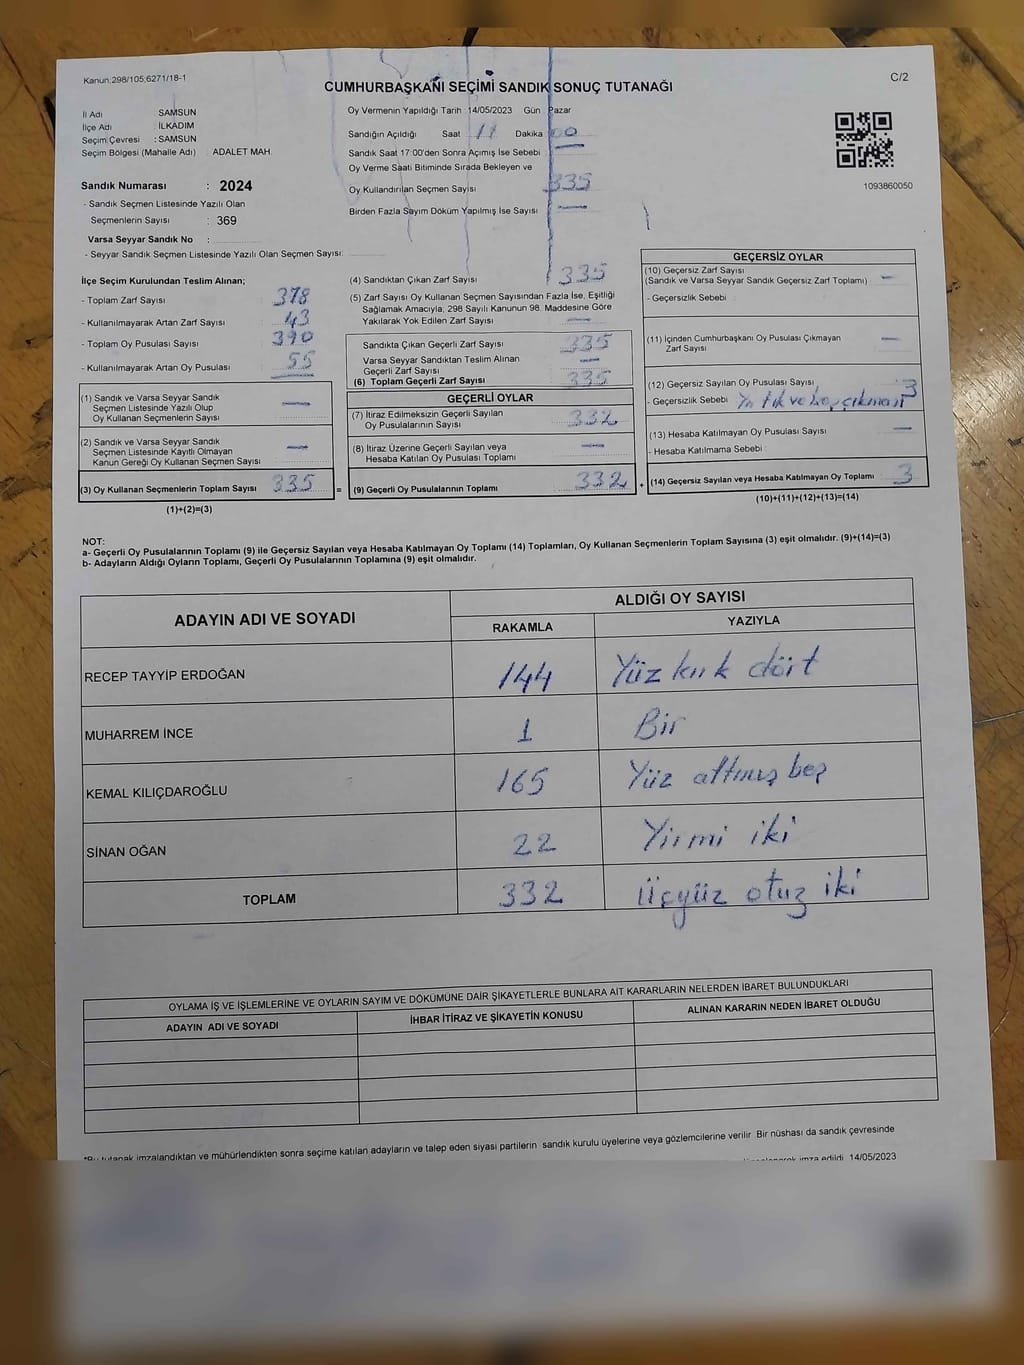 Kanun:298/105;6271/18-1
CUMHURBAŞKANI SEÇİMİ SANDIK SONUÇ TUTANAĞI
C/2
İl Adı SAMSUN
İlçe Adı İLKADIM
Seçim Çevresi : SAMSUN
Seçim Bölgesi (Mahalle Adı) ADALET MAH.
Sandık Numarası : 2024
- Sandık Seçmen Listesinde Yazılı Olan
Seçmenlerin Sayısı : 369
Varsa Seyyar Sandık No :
- Seyyar Sandık Seçmen Listesinde Yazılı Olan Seçmen Sayısı:
Oy Vermenin Yapıldığı Tarih : 14/05/2023 Gün Pazar
Sandığın Açıldığı Saat Dakika 00
Sandık Saat 17:00'den Sonra Açımış İse Sebebi
Oy Verme Saati Bitiminde Sırada Bekleyen ve
Oy Kullandırılan Seçmen Sayısı 335
Birden Fazla Sayım Döküm Yapılmış İse Sayısı —
1093860050
İlçe Seçim Kurulundan Teslim Alınan;
- Toplam Zarf Sayısı : 378
- Kullanılmayarak Artan Zarf Sayısı : 43
- Toplam Oy Pusulası Sayısı : 390
- Kullanılmayarak Artan Oy Pusulası : 55
(1) Sandık ve Varsa Seyyar Sandık
Seçmen Listesinde Yazılı Olup
Oy Kullanan Seçmenlerin Sayısı —
(2) Sandık ve Varsa Seyyar Sandık
Seçmen Listesinde Kayıtlı Olmayan
Kanun Gereği Oy Kullanan Seçmen Sayısı —
(3) Oy Kullanan Seçmenlerin Toplam Sayısı 335
(1)+(2)=(3)
(4) Sandıktan Çıkan Zarf Sayısı 335
(5) Zarf Sayısı Oy Kullanan Seçmen Sayısından Fazla İse, Eşitliği
Sağlamak Amacıyla; 298 Sayılı Kanunun 98. Maddesine Göre
Yakılarak Yok Edilen Zarf Sayısı —
Sandıkta Çıkan Geçerli Zarf Sayısı 335
Varsa Seyyar Sandıktan Teslim Alınan
Geçerli Zarf Sayısı —
(6) Toplam Geçerli Zarf Sayısı 335
GEÇERLİ OYLAR
(7) İtiraz Edilmeksizin Geçerli Sayılan
Oy Pusulalarının Sayısı 332
(8) İtiraz Üzerine Geçerli Sayılan veya
Hesaba Katılan Oy Pusulası Toplamı —
= (9) Geçerli Oy Pusulalarının Toplamı 332 +
GEÇERSİZ OYLAR
(10) Geçersiz Zarf Sayısı
(Sandık ve Varsa Seyyar Sandık Geçersiz Zarf Toplamı) —
- Geçersizlik Sebebi :
(11) İçinden Cumhurbaşkanı Oy Pusulası Çıkmayan
Zarf Sayısı —
(12) Geçersiz Sayılan Oy Pusulası Sayısı 3
- Geçersizlik Sebebi ve boş çıkması
(13) Hesaba Katılmayan Oy Pusulası Sayısı —
- Hesaba Katılmama Sebebi :
(14) Geçersiz Sayılan veya Hesaba Katılmayan Oy Toplamı 3
(10)+(11)+(12)+(13)=(14)
NOT:
a- Geçerli Oy Pusulalarının Toplamı (9) ile Geçersiz Sayılan veya Hesaba Katılmayan Oy Toplamı (14) Toplamları, Oy Kullanan Seçmenlerin Toplam Sayısına (3) eşit olmalıdır. (9)+(14)=(3)
b- Adayların Aldığı Oyların Toplamı, Geçerli Oy Pusulalarının Toplamına (9) eşit olmalıdır.
ADAYIN ADI VE SOYADI ALDIĞI OY SAYISI
RAKAMLA YAZIYLA
RECEP TAYYİP ERDOĞAN 144 Yüz kırk dört
MUHARREM İNCE 1 Bir
KEMAL KILIÇDAROĞLU 165 Yüz altmış beş
SİNAN OĞAN 22 Yirmi iki
TOPLAM 332 Üçyüz otuz iki
OYLAMA İŞ VE İŞLEMLERİNE VE OYLARIN SAYIM VE DÖKÜMÜNE DAİR ŞİKAYETLERLE BUNLARA AİT KARARLARIN NELERDEN İBARET BULUNDUKLARI
ADAYIN ADI VE SOYADI İHBAR İTİRAZ VE ŞİKAYETİN KONUSU ALINAN KARARIN NEDEN İBARET OLDUĞU
*Bu tutanak imzalandıktan ve mühürlendikten sonra seçime katılan adayların ve talep eden siyasi partilerin sandık kurulu üyelerine veya gözlemcilerine verilir. Bir nüshası da sandık çevresinde
imza edildi. 14/05/2023